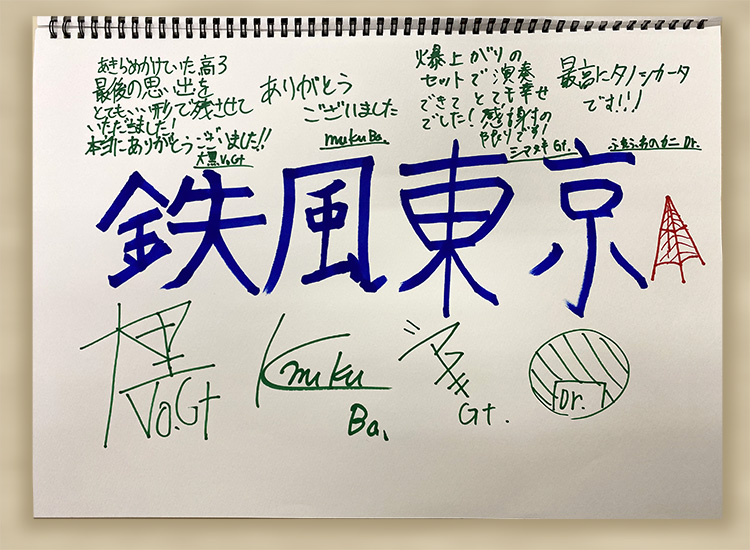 あきらめかけていた高3
最後の思い出を
とてもいい形で残させて
いただきました！
本当にありがとうございました!!
大黒 Vo.Gt
ありがとう
ございました
muku Ba.
爆上がりの
セットで演奏
できてとても幸せ
でした！感謝の
限りです！
シマヌキ Gt.
最高にタノシカータ
です!!!
ふちふちのカニ Dr.
鉄風東京
Vo.Gt
muku
Ba.
Gt.
Dr.